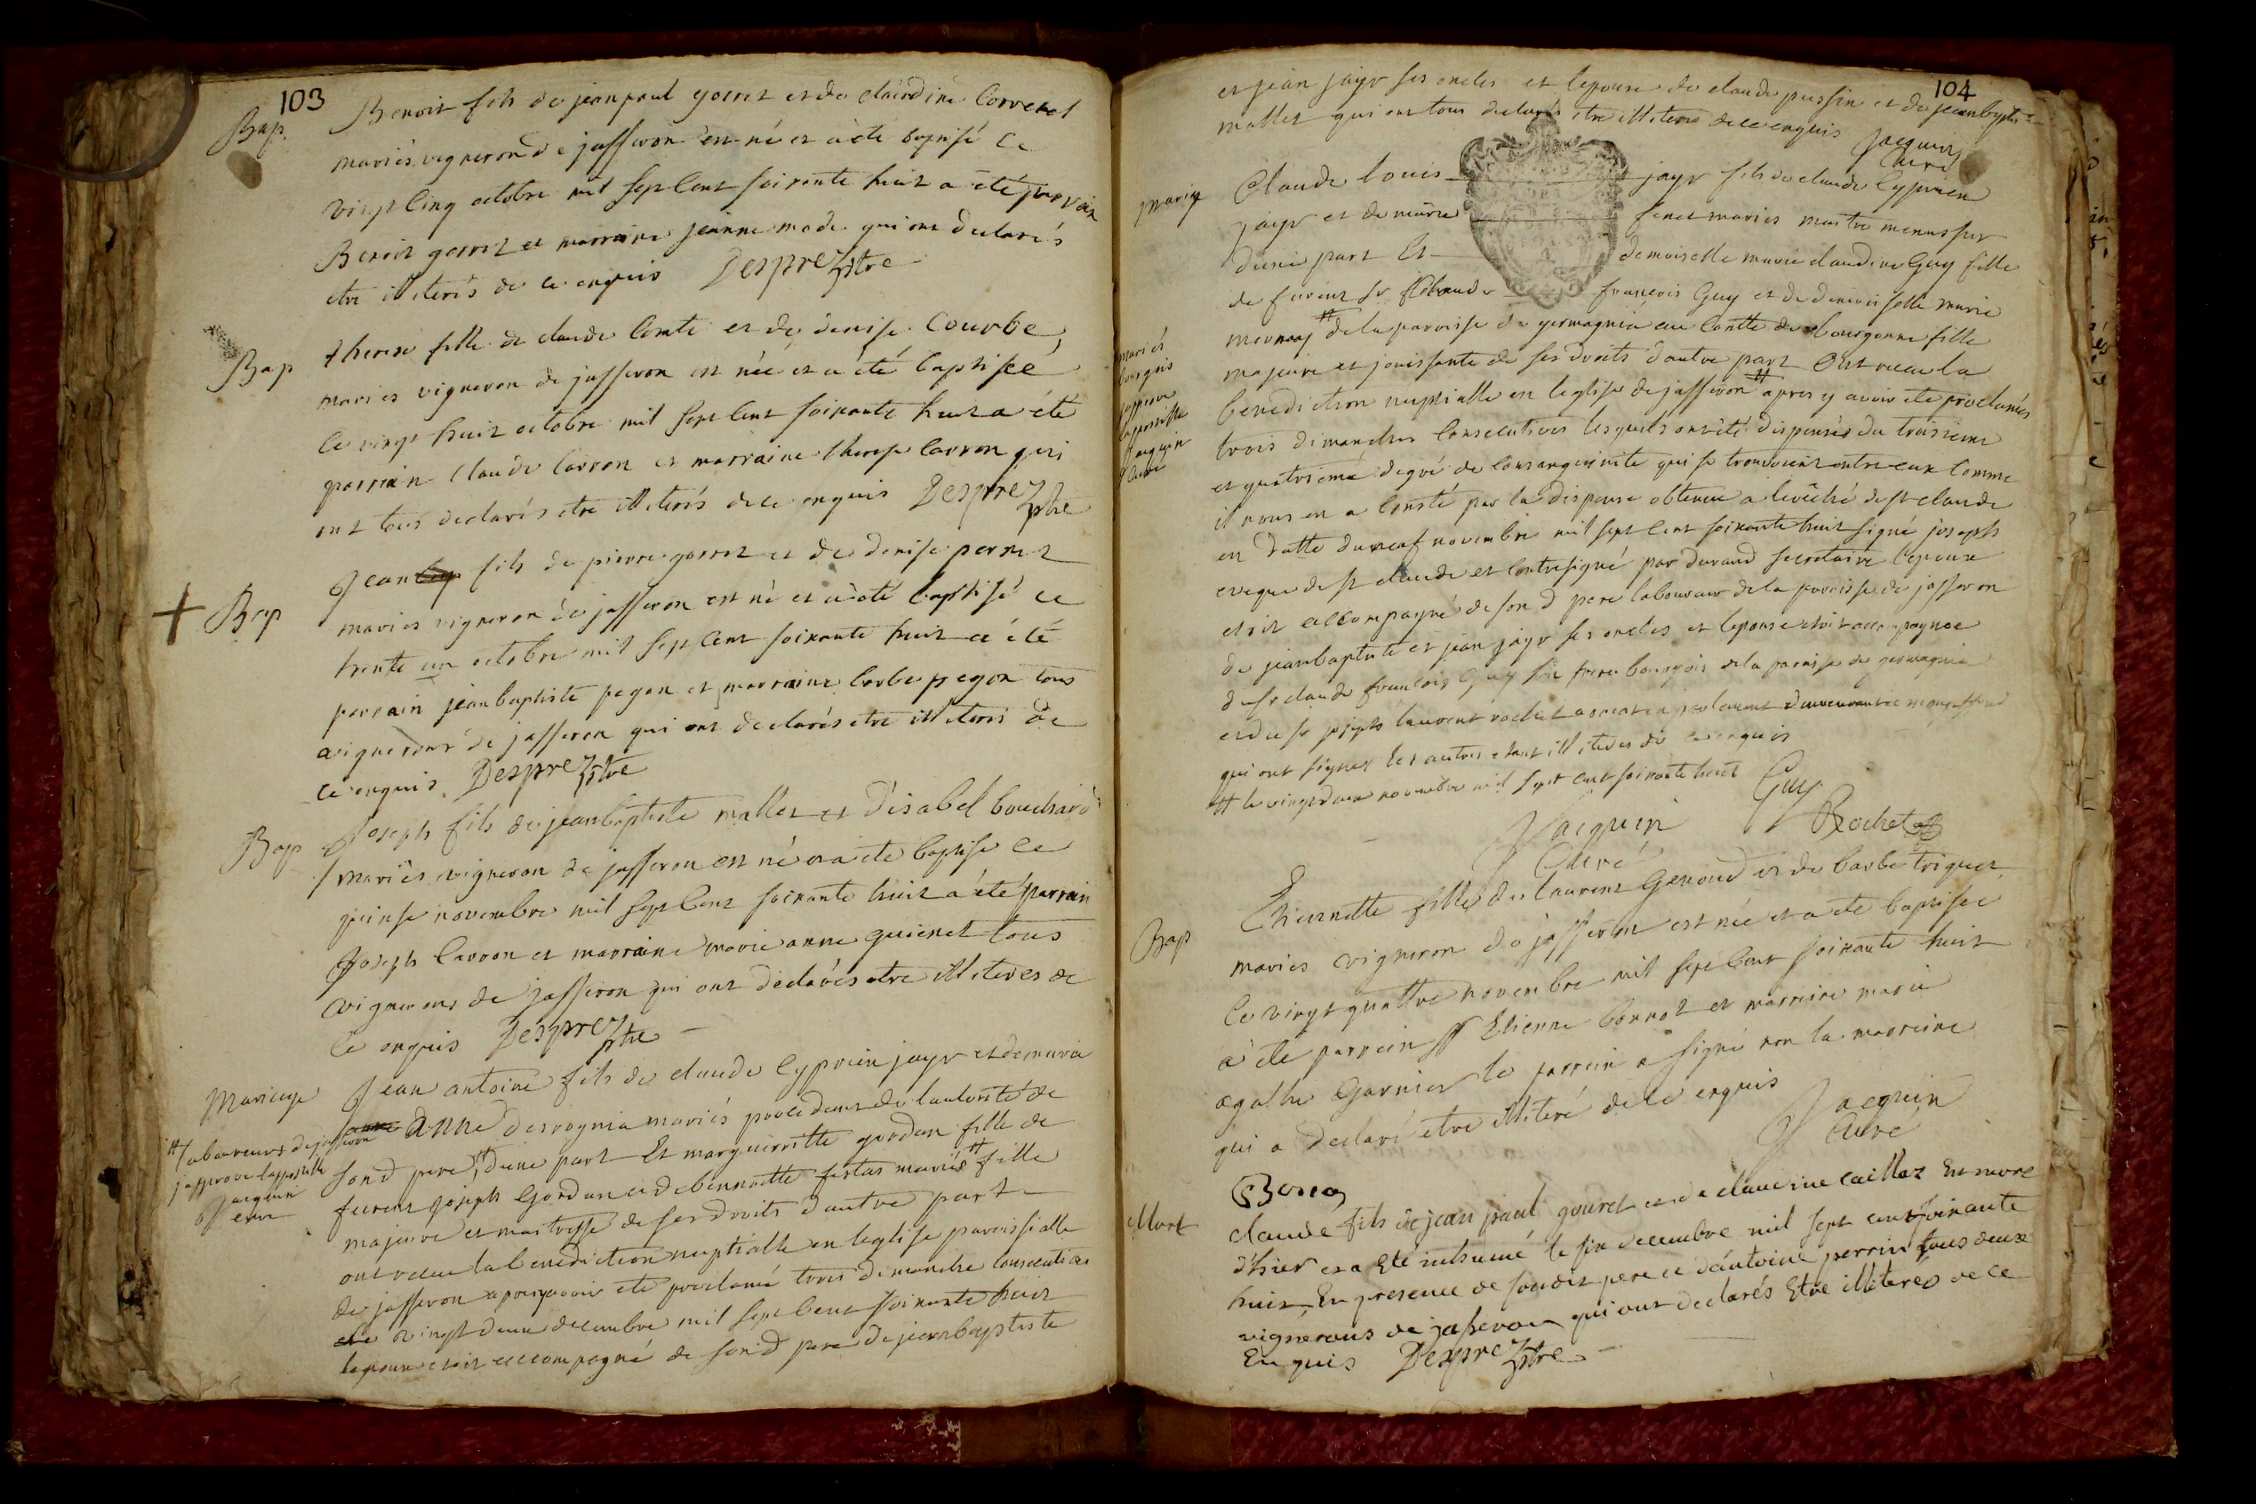 103
Bap. Benoit fils de jean paul gorret et de claudine Corveret
mariés vigneron de jasseron est né et a été baptisé le
vingt cinq octobre mil sept cent soixante huit a été parrain
Benoit gorret et marraine jeanne mode qui ont declarés
etre illiterés de ce enquis Desprez ptre
Bap therese fille de claude Comte et de denise Courbe,
mariés vigneron de jasseron est née et a été baptisée
le vingt huit octobre mil sept cent soixante huit a été
parrain claude Carron et marraine therese Carron qui
ont tous declarés etre illiterés de ce enquis Desprez ptre
+ Bap Jean fils de pierre gorret et de denise perret
mariés vigneron de jasseron est né et a été baptisé le
trente un octobre mil sept cent soixante huit a été
parrain jean baptiste pegon et marraine barbe pegon tous
vignerons de jasseron qui ont declarés etre illiterés de
ce enquis Desprez ptre
Bap Joseph fils de jean baptiste mallet et d'isabel bouchard
mariés vigneron de jasseron est né et a été baptisé le
quinse novembre mil sept cent soixante huit a été parrain
Joseph Carron et marraine marie anne guienet tous
vignerons de jasseron qui ont declarés etre illiteres de
ce enquis Desprez ptre
Mariage Jean antoine fils de claude Cyprien jayr et de marie
anne desrognia mariés procedant de l'autorité de
# laboureurs de jasseron
j'approuve l'apostille
Jacquin
curé
son d pere # d'une part Et marguerritte gordan fille de
furent joseph Gordan et de bennoitte festas mariés # fille
majeure et maitresse de ses droits d'autre part
ont recue la benediction nuptialle en l'eglise paroissialle
de jasseron apres y avoir été proclamé trois dimanche consecutives
le vingt deux decembre mil sept cent soixante huit
l'epoux etoit accompagné de son d pere de jean baptiste
104
et jean jayr ses oncles et l'epouse de claude pussin et de jean baptiste
mallet qui ont tous declarés etre illiteres de ce enquis Jacquin
Curé
Mariage Claude louis jayr fils de claude Cyprien
jayr et de marie fenet mariés maitre menussier
d'une part Et demoiselle marie claudine Guy fille
de furent sr Claude françois Guy et de demoiselle marie
# de la paroisse de germagnia au Comté de bourgonne fille
mariés
bourgois
j'approuve
l'apostille
Jacquin
Curé
majeure et jouissante de ses droits d'autre part Ont recu la
benediction nuptialle en l'eglise de jasseron # apres y avoir été proclamés
trois dimanches consecutives lesquels ont été dispensés du troisieme
et quatrieme degré de consanguinité qui se trouvoient entre eux comme
il nous en a consté par la dispense obtenue a l'evêché de st claude
en datte du neuf novembre mil sept cent soixante huit signé joseph
eveque de st claude et contresigné par durand secretaire l'epoux
etoit accompagné de son d pere laboureur de la paroisse de jasseron
de jean baptiste et jean jayr ses oncles et l'epouse etoit accompagnée
de sr claude francois Guy son frere bourgois de la paroisse de germagnia
et de sr joseph laurent rochet
qui ont signer les autres etant illiteres de ce enquis
# le vingt deux novembre mil sept cent soixante huit Guy
Jacquin
Curé
Rochet
Bap Etiennette fille de laurent Genoud et de barbe triquet
mariés vigneron de jasseron est née et a été baptisée
le vingt quattre novembre mil sept cent soixante huit
a été parrein sr Etienne bonnot et marreine marie
agathe Garnier le parrein a signé non la marreine
qui a declaré etre illiteré de ce enquis Jacquin
Curé
Mort claude fils de jean paul gouret et de claudine caillat Est mort
d'hier et a eté inhumé le six decembre mil sept cent soixante
huit, En presence de sondit pere et d'antoine perrin tous deux
vignerons de jasseron qui ont declarés Etre illiteres de ce
Enquis Desprez ptre